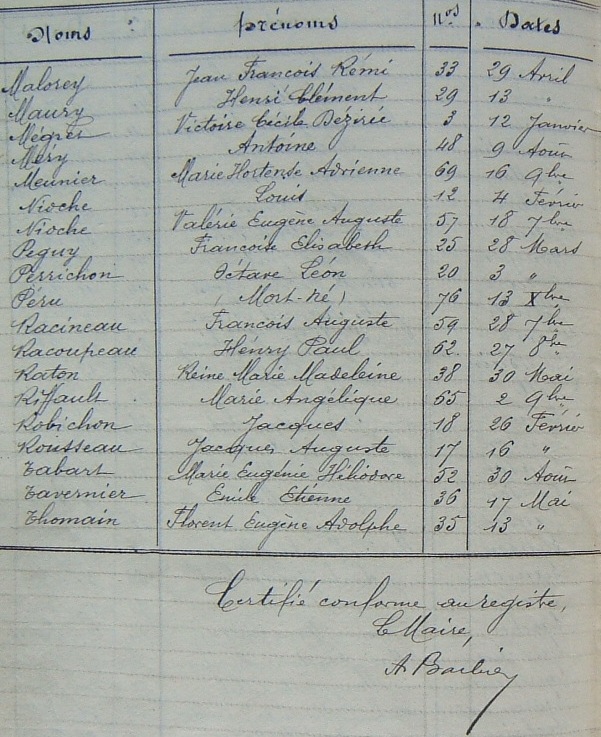 Noms Prénoms Nos Dates
Malorey Jean Francois Rémi 33 29 Avril
Maury Henri Clément 29 13 "
Mégret Victoire Cécile Dezirée 3 12 Janvier
Méry Antoine 48 9 Août
Meunier Marie Hortense Adrienne 69 16 9bre
Nioche Louis 12 4 Février
Nioche Valérie Eugène Auguste 57 18 7bre
Peguy Francoise Elisabeth 25 28 Mars
Perrichon Octave Léon 20 3 "
Péru (Mort-né) 76 13 Xbre
Racineau Francois Auguste 59 28 7bre
Racoupeau Henry Paul 62. 27 8bre
Raton Reine Marie Madeleine 38 30 Mai
Riffault Marie Angélique 65 2 9bre
Robichon Jacques 18 26 Février
Rousseau Jacques Auguste 17 16 "
Tabart Marie Eugénie Héliodore 52 30 Août
Tavernier Emile Etienne 36 17 Mai
Thomain Florent Eugène Adolphe 35 13 "
Certifié conforme au registre,
Le Maire,
A